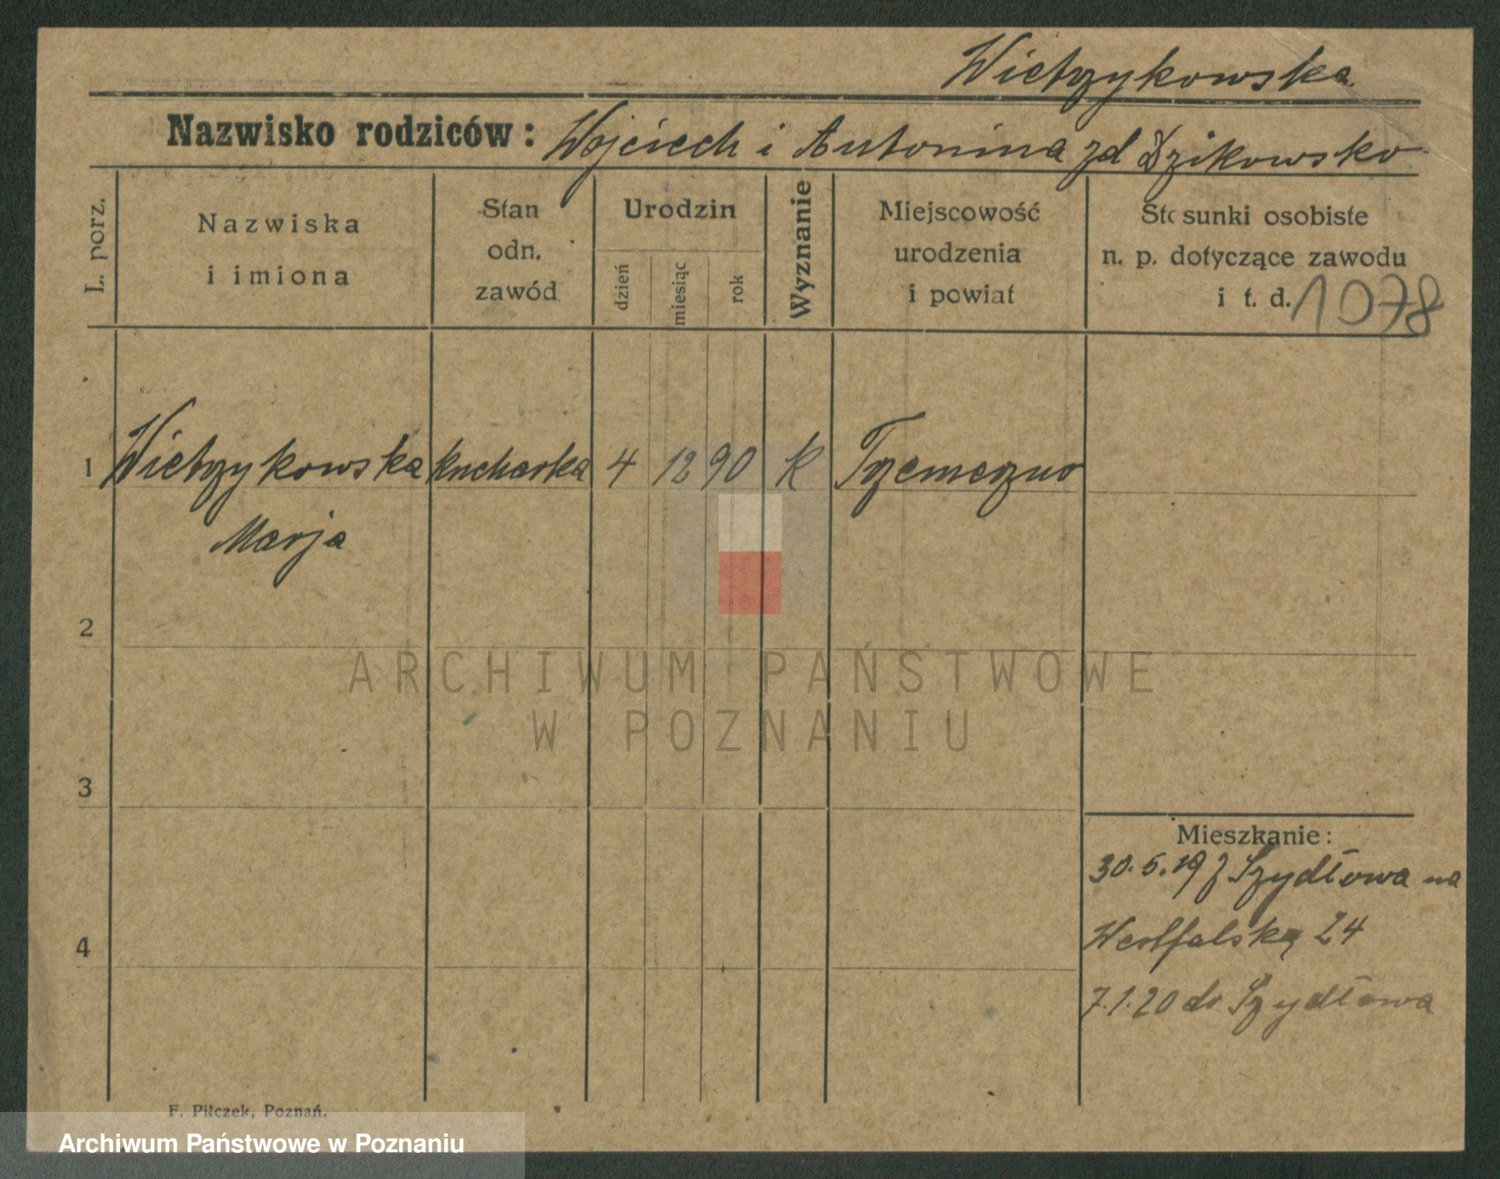 Wietrzykowska
Nazwisko rodziców: Wojciech i Antonina zd Dzikowsko
L. porz.
Nazwiska
i imiona
Stan
odn.
zawód
Urodzin
dzień
miesiąc
rok
Wyznanie
Miejscowość
urodzenia
i powiat
Stosunki osobiste
n. p. dotyczące zawodu
i t. d.
1078
1 Wietrzykowska kucharka 4 12 90 K Trzemeszno
Marja
2
3
4
Mieszkanie:
30.5.19 z Szydłowa na
Westfalską 24
7.1.20 do Szydłowa
ARCHIWUM PAŃSTWOWE
W POZNANIU
F. Pilczek, Poznań.
Archiwum Państwowe w Poznaniu